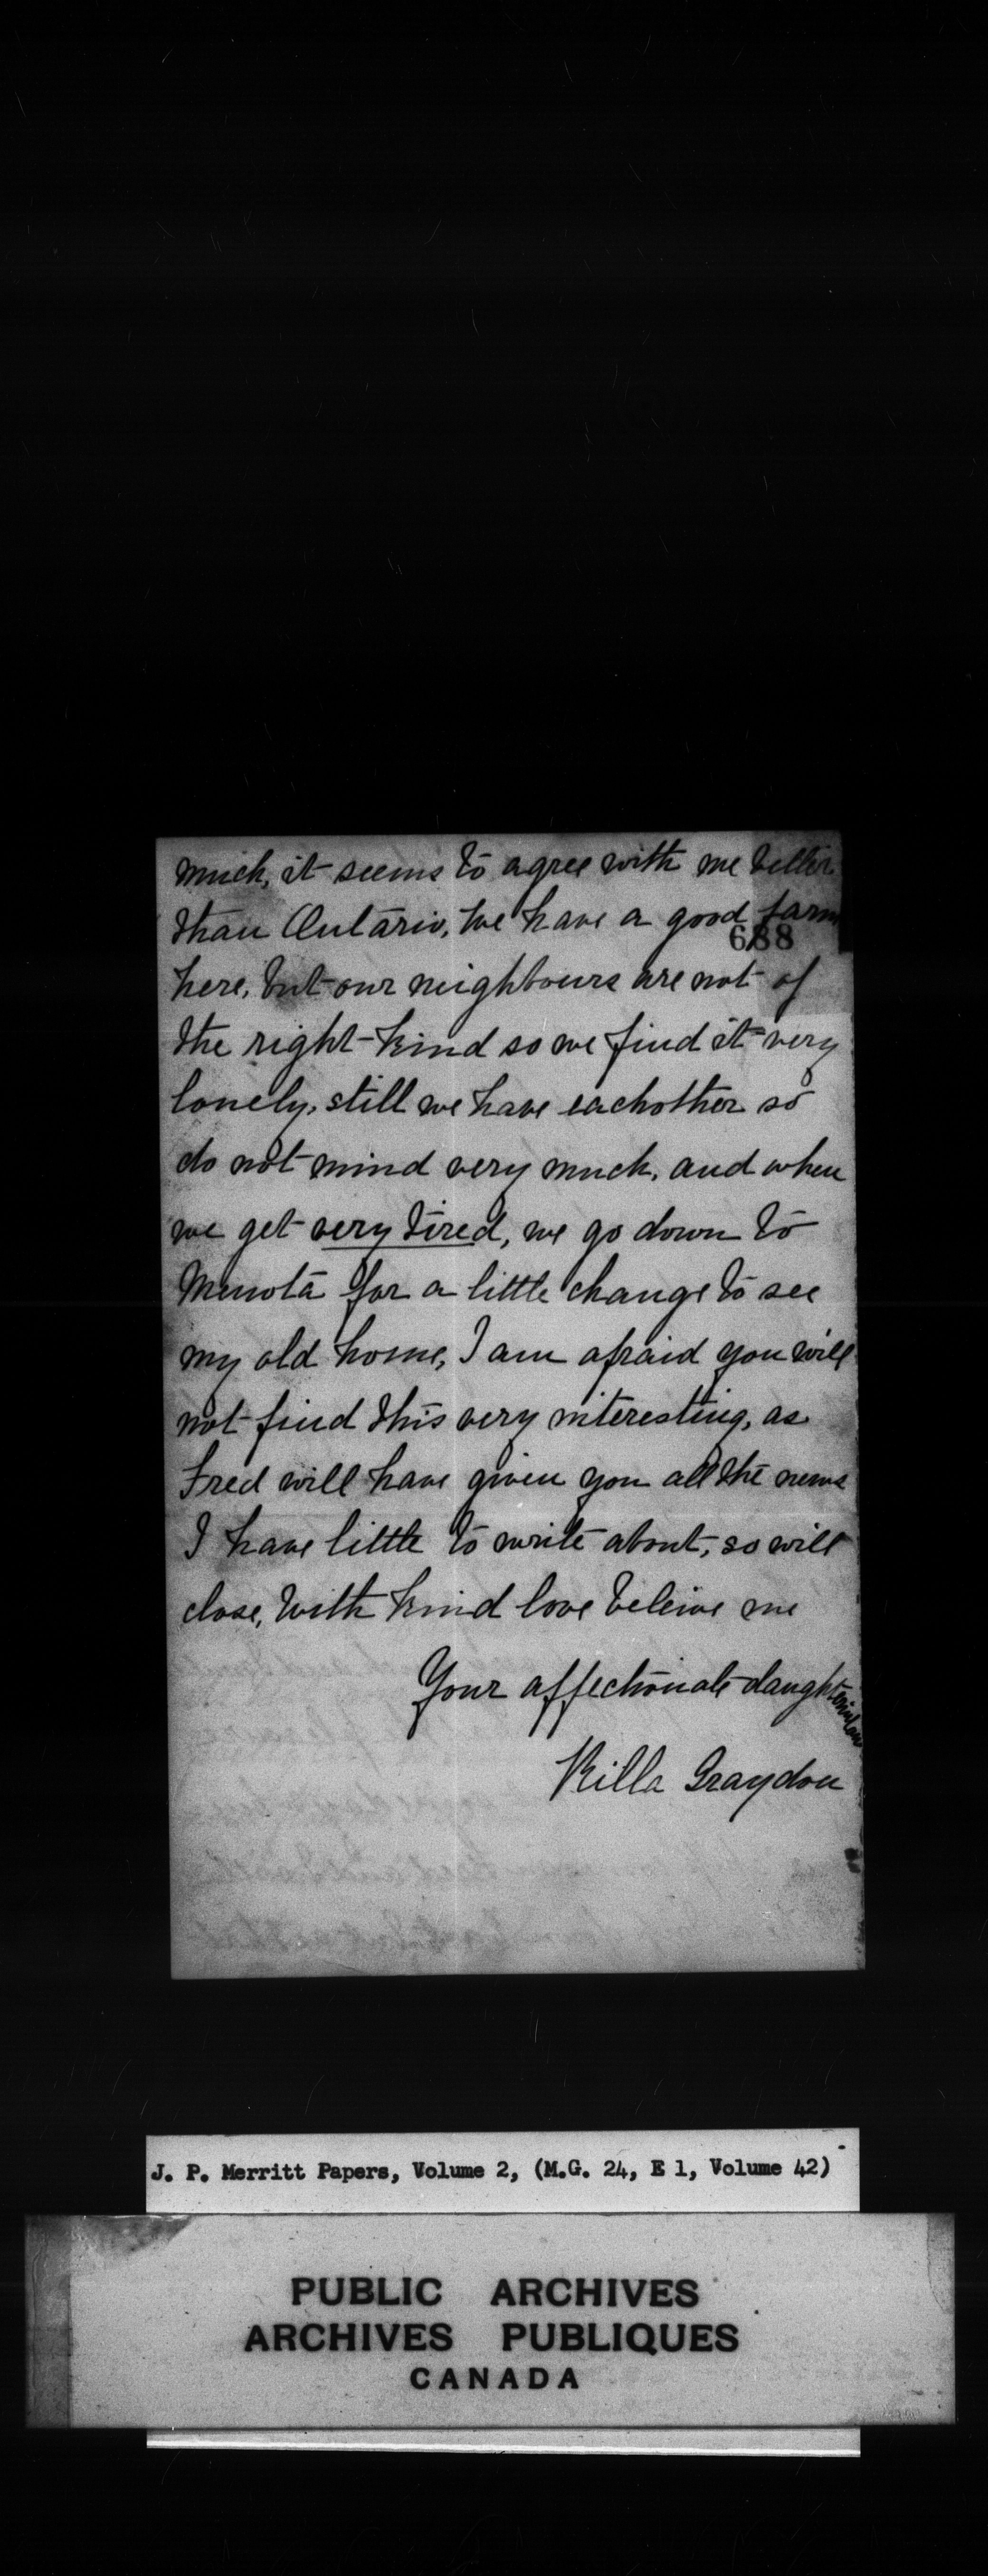 much, it seems to agree with me better
than Ontario, we have a good farm
688
here, but our neighbours are not of
the right kind so we find it very
lonely, still we have eachother so
do not mind very much, and when
we get very tired, we go down to
Menota for a little change to see
my old home, I am afraid you will
not find this very interesting, as
Fred will have given you all the news
I have little to write about, so will
close, With kind love beleive me
Your affectionate daughterinlaw
Rilla Graydon
J. P. Merritt Papers, Volume 2, (M.G. 24, E 1, Volume 42)
PUBLIC ARCHIVES
ARCHIVES PUBLIQUES
CANADA